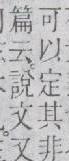 可以定其非
篇云說文又